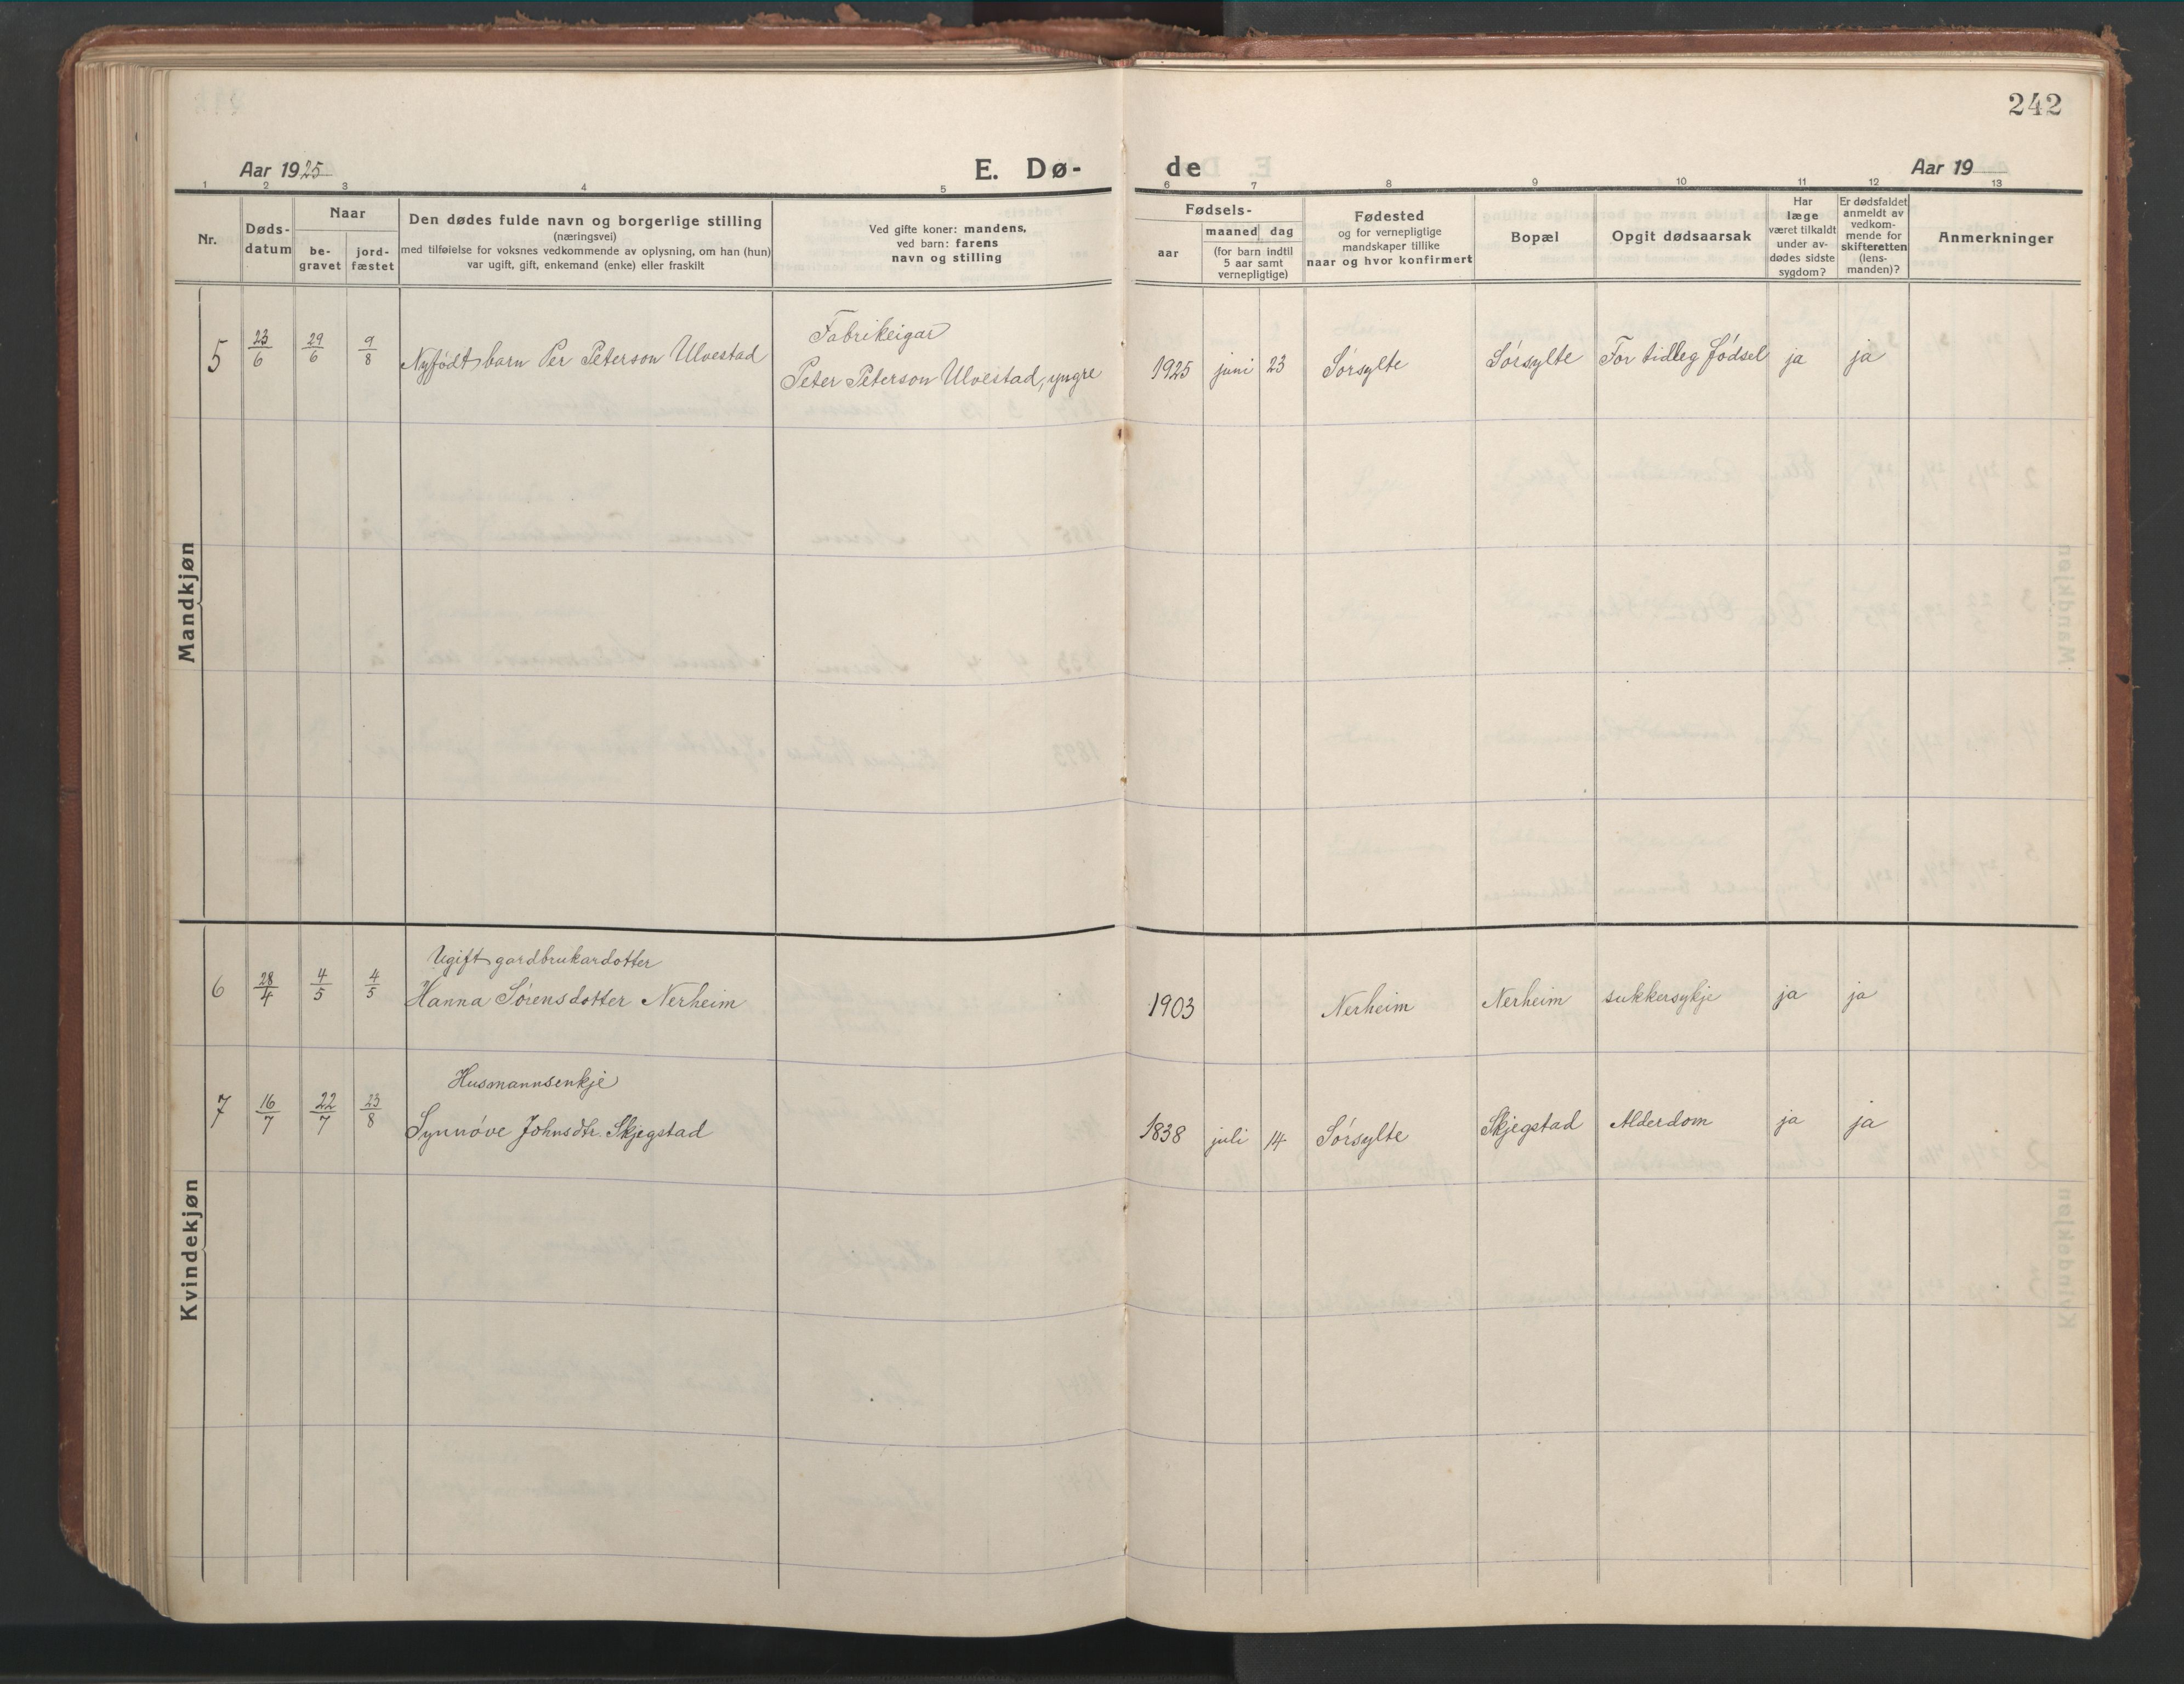 242
Aar 1925 E. Dø- de Aar 19
1 2 3 4 5 6 7 8 9 10 11 12 13
Nr.
Døds-
datum
Naar
be-
gravet
jord-
fæstet
Den dødes fulde navn og borgerlige stilling
(næringsvei)
med tilføielse for voksnes vedkommende av oplysning, om han (hun)
var ugift, gift, enkemand (enke) eller fraskilt
Ved gifte koner: mandens,
ved barn: farens
navn og stilling
Fødsels-
aar
maaned dag
(for barn indtil
5 aar samt
vernepligtige)
Fødested
og for vernepligtige
mandskaper tillike
naar og hvor konfirmert
Bopæl
Opgit dødsaarsak
Har
læge
været tilkaldt
under av-
dødes sidste
sygdom?
Er dødsfaldet
anmeldt av
vedkom-
mende for
skifteretten
(lens-
manden)?
Anmerkninger
Mandkjøn
Fabrikeigar
5 23/6 29/6 9/8 Nyfødt barn Per Peterson Ulvestad Peter Peterson Ulvestad, yngre 1925 juni 23 Sørsylte Sørsylte For tidleg fødsel ja ja
Kvindekjøn
Ugift gardbrukardotter
6 28/4 4/5 4/5 Hanna Sørensdotter Nerheim 1903 Nerheim Nerheim sukkersykje ja ja
Husmannsenkje
7 16/7 22/7 23/8 Synnøve Johnsdtr. Skjegstad 1838 juli 14 Sørsylte Skjegstad Alderdom ja ja